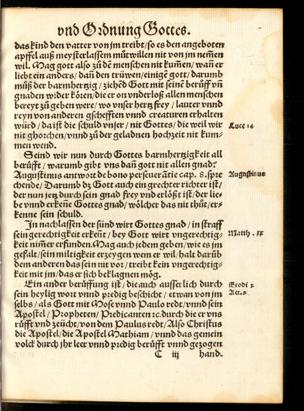 vnd Ordnung Gottes.
das kind den vatter von jm treibt / so es den angeboten
apffel auß meysterlassem mütwillen nit von jm nemen
wil. Mag gott also zů dē menschen nit kum̄en / wañ er
liebt ein anders / dañ den trüwen / einigē gott / darumb
můß der barmhertzig / ziehēd Gott mit seinē berüff vn̄
gnaden wider kören / die er on vnderloß allen menschen
bereyt zů geben were / wo vnser hertz frey / lauter vnnd
reyn von anderen gschefften vnnd creaturen erhalten
würd / da ist die schuld vnser / nit Gottes / die weil wir
nit ghorchen / vnnd zů der geladnen hochzeit nit kum-
men wend.
Luce 14
Seind wir nun durch Gottes barmhertzigkeit all
berüfft / warumb gibt vns dañ got nit allen gnad?
Augustinus antwort de bono perseuerātie cap. 8. spre
Augustinus
chende / Darumb dz Gott auch ein grechter richter ist /
der nun jetz durch sein gnad frey vnd erlößt ist / der lie-
be vnnd erkenne Gottes gnad / wölcher das nit thůt / er-
kenne sein schuld.
Im nachlassen der sünd wirt Gottes gnad / in straff
sein gerechtigkeit erkeñt / bey Gott wirt vngerechtig-
keit nim̄er erfunden. Mag auch jedem geben / wie es jm
Matth. xx
gefalt / sein miltigkeit erzeygen wem er wil / halt darüb
dem anderen das sein nit vor / treibt kein vngerechtig-
keit mit jm / das er sich beklagnen mög.
Ein ander berüffung ist / die auch ausserlich durch
sein heylig wort vnnd predig beschicht / etwan von jm
Exodi 3
selbs / als Gott mit Mose vnnd Paulo redt / vnnd sein
Act. 9
Apostel / Propheten / Predicanten rc. durch die er vns
rüfft vnd zeücht / von dem Paulus redt / Also Christus
die Apostel / die Apostel Mathiam / vnnd das gemein
volck durch jhr leer vnnd predig berüfft vnnd gezogen
C iij
hand.